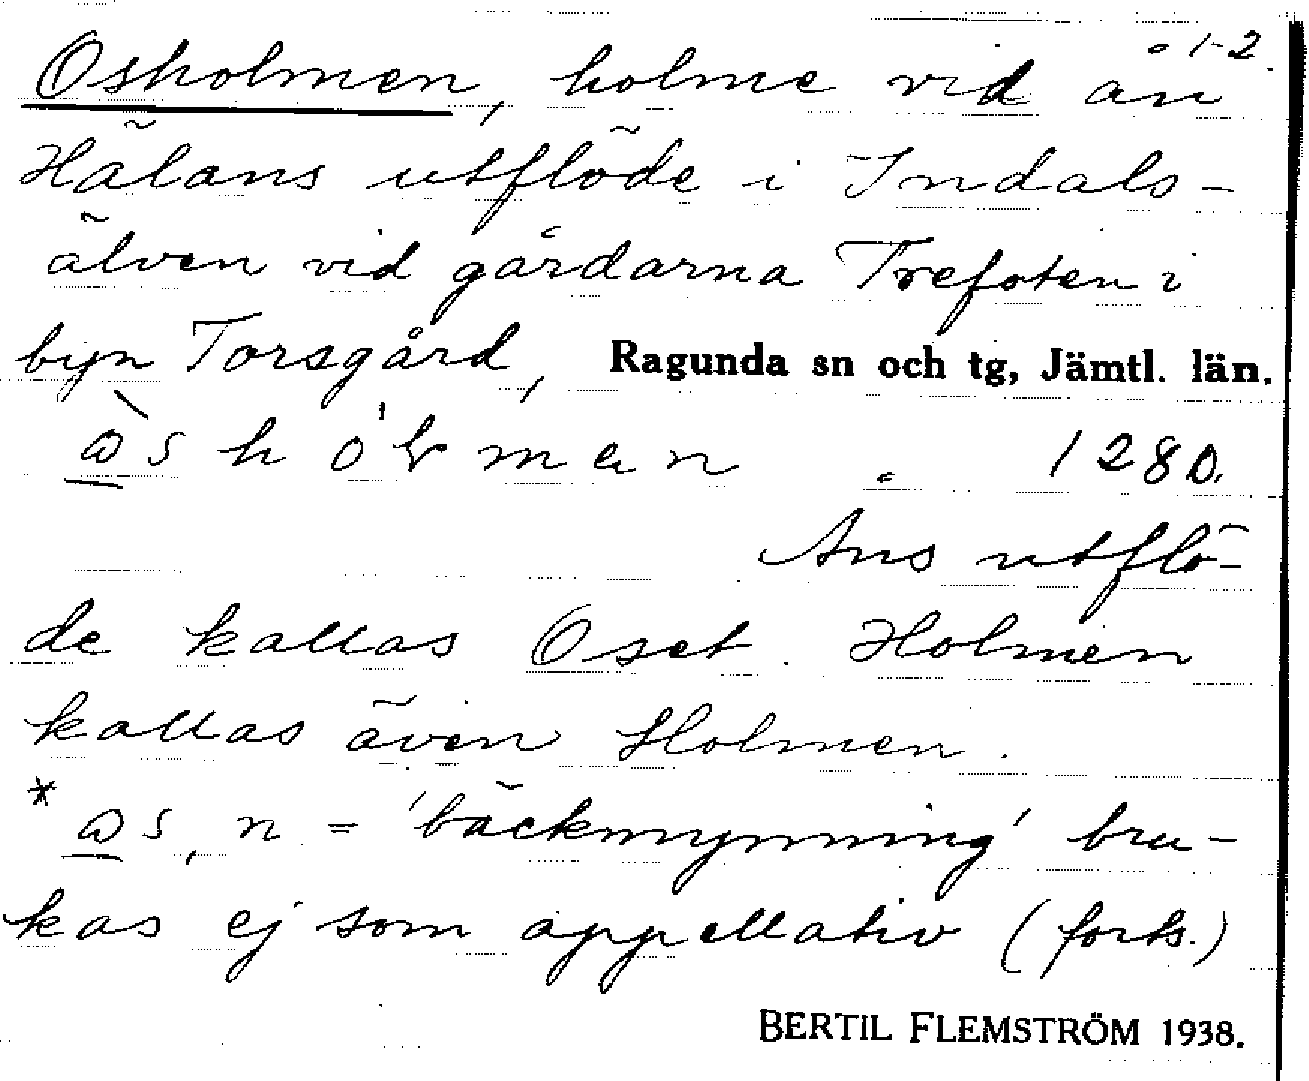 1-2
Osholmen, holme vid ån
Hälans utflöde i Indals-
älven vid gårdarna Trefoten i
byn Torsgård, Ragunda sn och tg, Jämtl. län.
1280.
Åns utflö-
de kallas Oset. Holmen
kallas även Holmen.
n = 'bäckmynning' bru-
kas ej som appellativ (forts.)
BERTIL FLEMSTRÖM 1938.